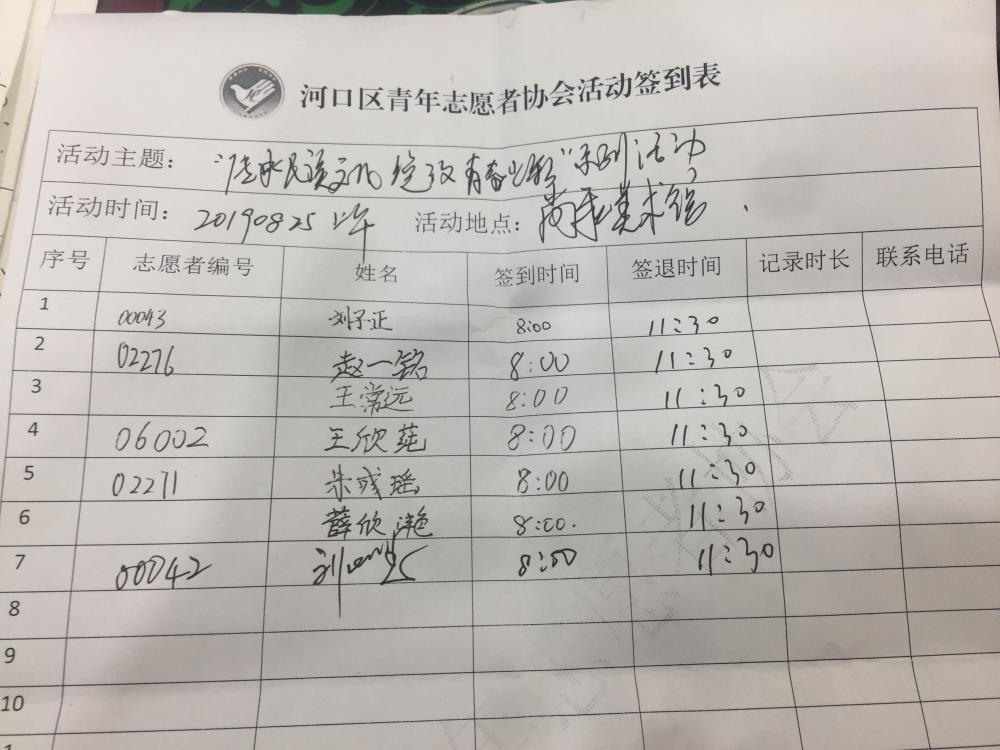 河口区青年志愿者协会活动签到表
活动主题: "传承民族文化 绽放青春光彩"系列活动
活动时间: 20190825 上午 活动地点: 尚美术馆
序号 志愿者编号 姓名 签到时间 签退时间 记录时长 联系电话
1 00043 刘子正 8:00 11:30
2 02276 赵一铭 8:00 11:30
3 王常远 8:00 11:30
4 06002 王欣莼 8:00 11:30
5 02271 朱彧瑶 8:00 11:30
6 薛欣滟 8:00. 11:30
7 00042 8:00 11:30
8
9
10